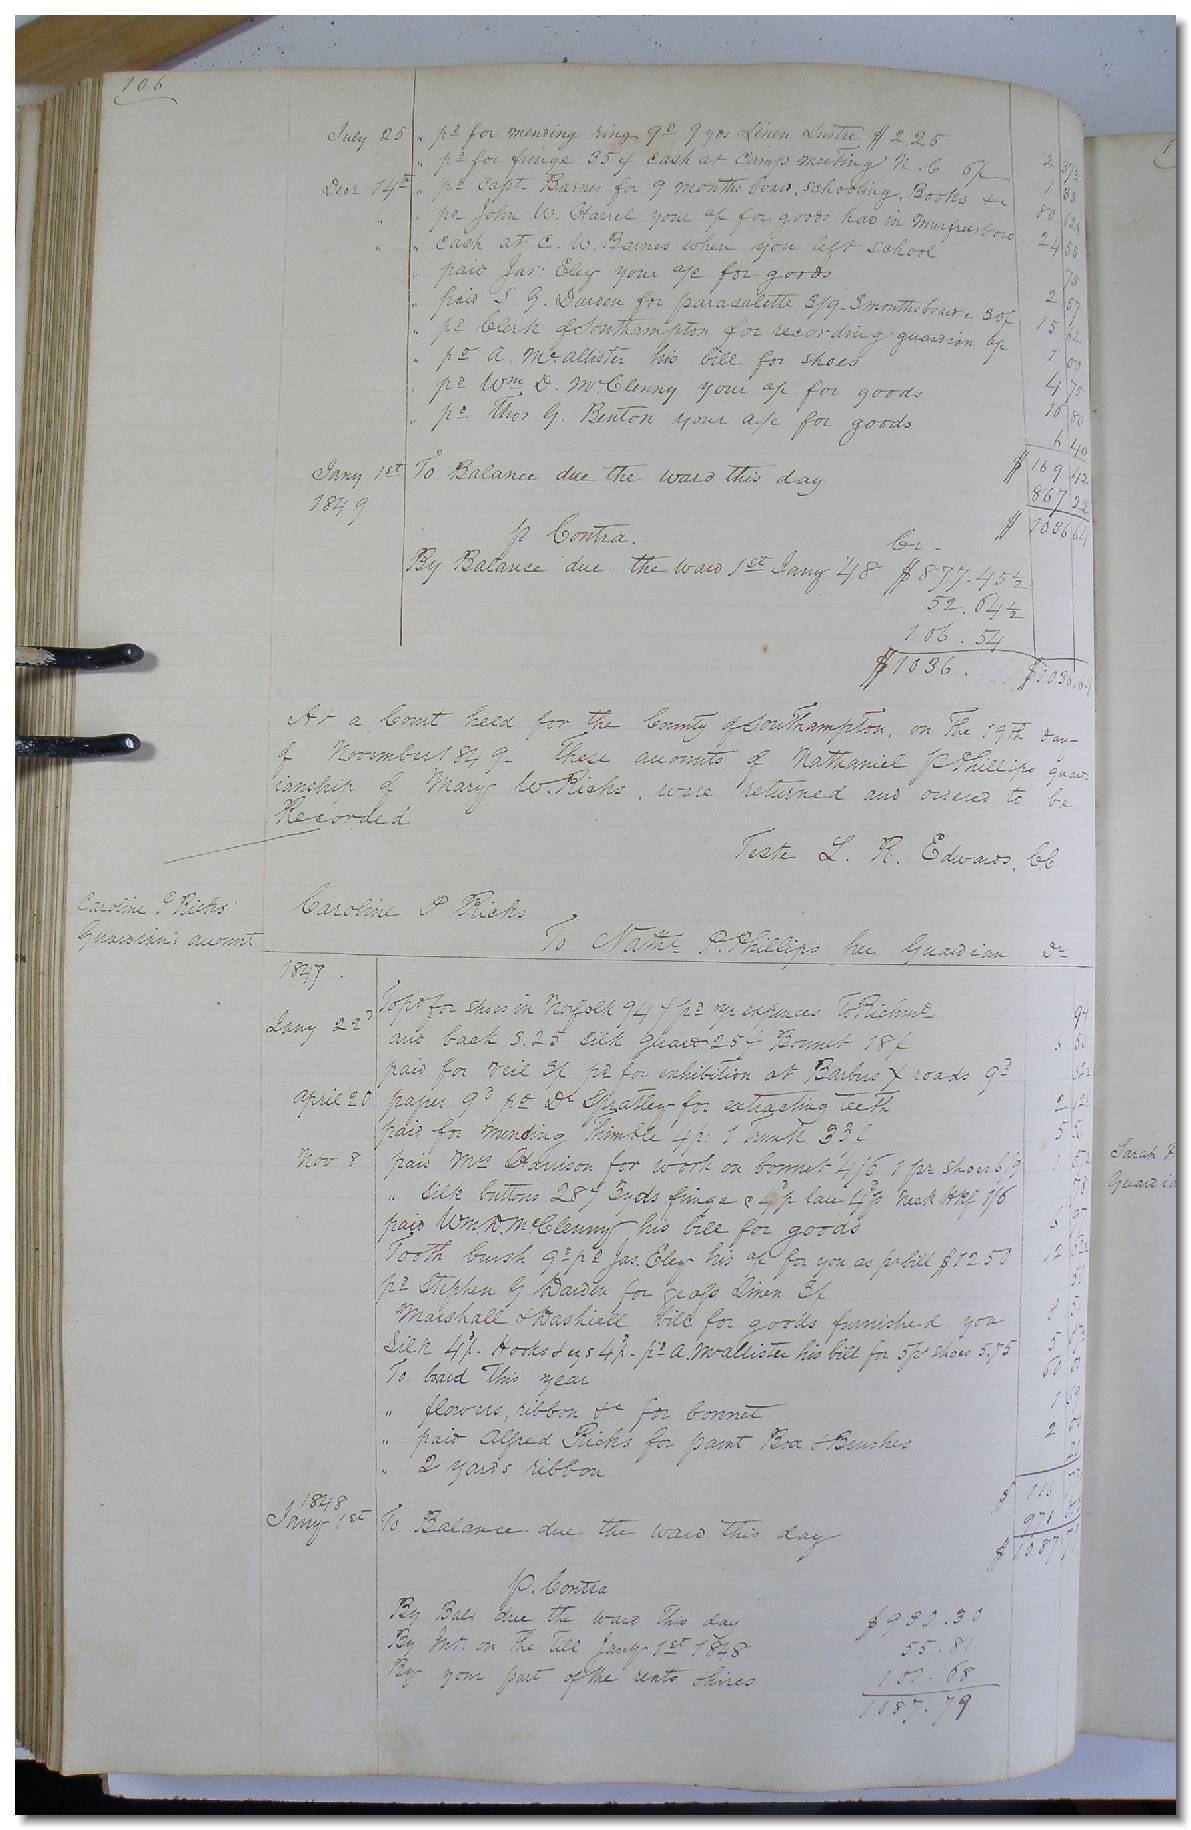 106
July 25 " pd for mending ring 9d 9 yds Linen Lustre $2.25 2 37½
" pd for fringe 35¢ cash at camp meeting N. C 6/ 1 35
Decr 14th " pd Capt Barnes for 9 months board, schooling, Books &c 80 62½
" " pd John W. Harrel your a/c for goods had in Murfreesboro 24 55
" " cash at C. W. Barnes when you left school 75
" paid Jas: Eley your a/c for goods 2 57
" paid S G. Darden for parasalette 3/9. 3 months board 30/ 15 62
" pd Clerk of Southampton for recording guardian a/c 1 00
" pd A. McAllister his bill for shoes 4 75
" pd Wm D. McClenny your a/c for goods 16 80
" pd Thos G. Benton your a/c for goods 6 40
$ 169 42
Jany 1st To Balance due the ward this day 867 22
1849 $ 1036 64
p Contra. Cr -
By Balance due the ward 1st Jany '48 $877.45½
52.64½
106.54
$1036. $1036.64
At a Court held for the County of Southampton, on the 19th day
of November 1849 - These accounts of Nathaniel P Phillips guar-
dianship of Mary W. Ricks, were returned and ordered to be
Recorded
Teste L. R. Edwards, CC
Caroline P Ricks'
Guardian's account
Caroline P Ricks
To Nathl P. Phillips her Guardian Dr
1847.
Jany 22d To pd for shoes in Norfolk 94¢ pd yr expences To Richmd 94
and back 3.25 silk guard 25¢ Bonnet 18/ 50
paid for veil 3/ pd for exhibition at Barbers X roads 9d 62½
April 20 paper 9d pd Dr Spratley for extracting teeth 2 12½
paid for mending Thimble 4p: 1 Trunk 33/ 5 56
Nov 8 paid Mrs Harrison for work on bonnet 4/6 1 pr shoes 6/9 1 87½
" silk buttons 28¢ 3yds fringe & lace neck Hkf 1/6 78
paid Wm D. McClenny his bill for goods 6 97
Tooth brush 9d pd Jas. Eley his a/c for you as pr bill $12.50 12 62½
pd Stephen G Darden for grass linen 3/ 50
Marshall & Dashiell bill for goods furnished you 8 37
Silk 4p. Hooks & eys 4p - pd A. McAllister his bill for 5 pr shoes 5.75 5 87½
To board this year 60 00
" flowers, ribbon &c for bonnet 1 69
" paid Alfred Ricks for paint Box & Brushes 2 00
" 2 yards ribbon 25
$ 116 77
1848
Jany 1st To Balance due the ward this day 971 02
$ 1087 79
P. Contra
By Bals due the ward this day $930.30
By Int. on the till Jany 1st 1848 55.81
By your part of the rents & hires 101.68
1087.79
Sarah
Guardia